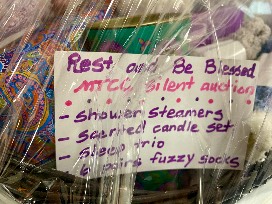 Rest and Be Blessed
MTCC Silent auction
- Shower Steamers
- Scented candle set
- Sleep trio
6 pairs fuzzy socks